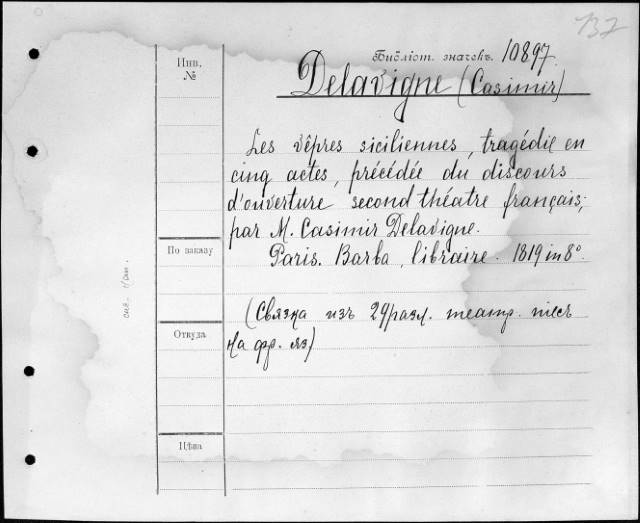 137
Библіот. значекъ. 10897.
Инв.
№
Delavigne (Casimir)
Les vêpres siciliennes, tragédie en
cinq actes, précédée du discours
d'ouverture second théatre français;
par M. Casimir Delavigne.
По заказу
Paris. Barba, libraire. 1819 in 8°.
(Связка изъ 29 разл. театр. піесъ
Откуда
на фр. яз)
Цѣна